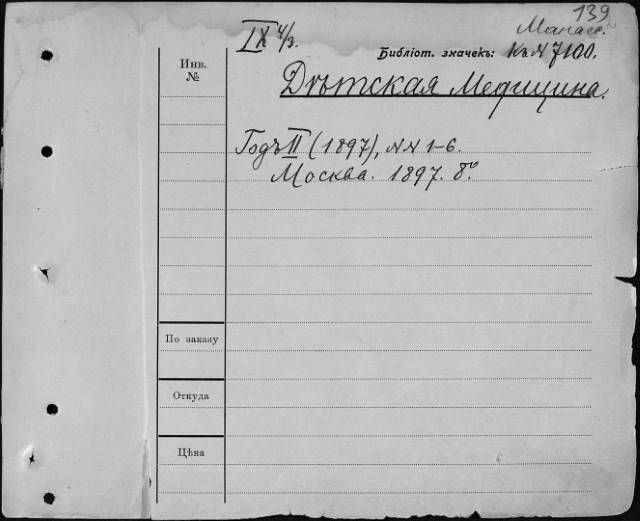 139
IX 4/3.
Манасс.
Библіот. значекъ: Къ N 7100.
Инв.
№
Дѣтская Медицина.
Годъ II (1897), NN 1-6.
Москва. 1897. 8º.
По заказу
Откуда
Цѣна